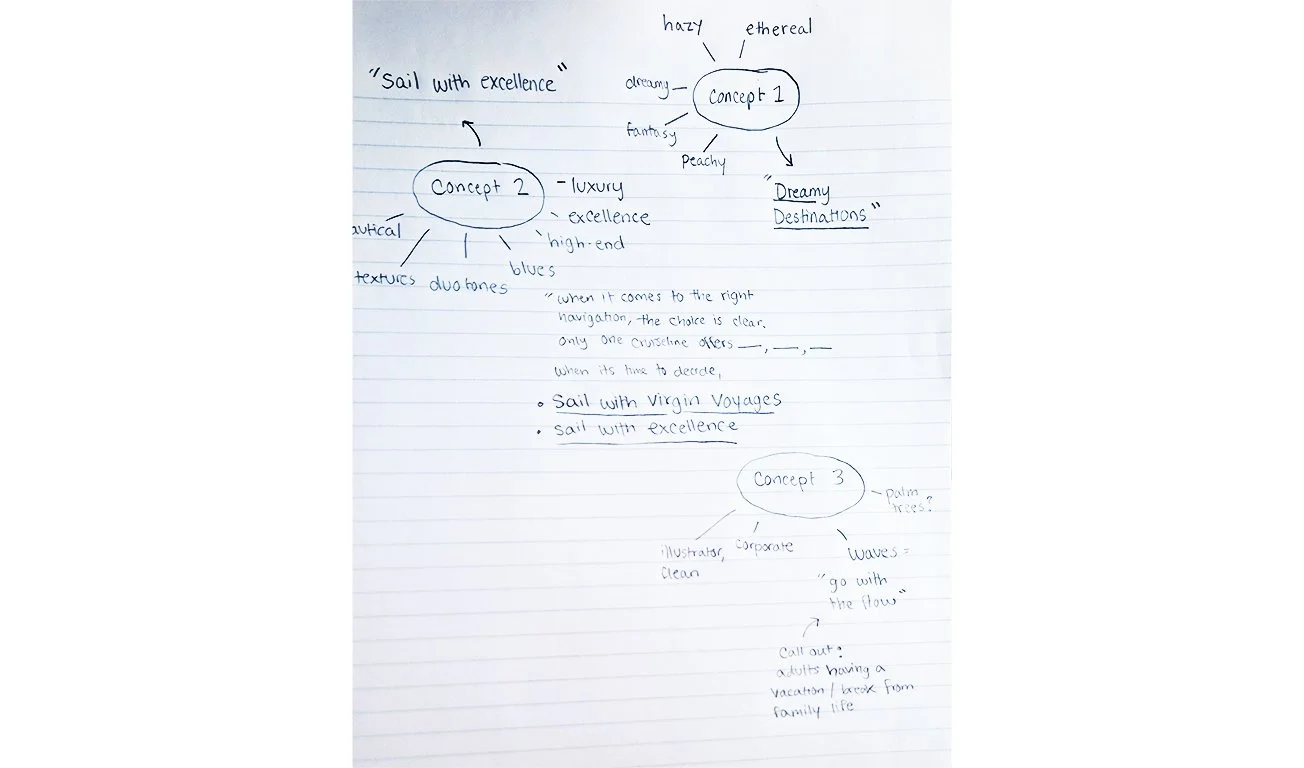 hazy
ethereal
dreamy
Concept 1
fantasy
Peachy
"Dreamy
Destinations"
"Sail with excellence"
Concept 2
luxury
excellence
high-end
autical
textures
duotones
blues
"when it comes to the right
navigation, the choice is clear.
only one cruiseline offers __, __, __
when its time to decide,
• Sail with Virgin Voyages
• sail with excellence
Concept 3
palm
trees?
illustrator,
clean
corporate
waves =
"go with
the flow"
Call out:
adults having a
vacation / break from
family life